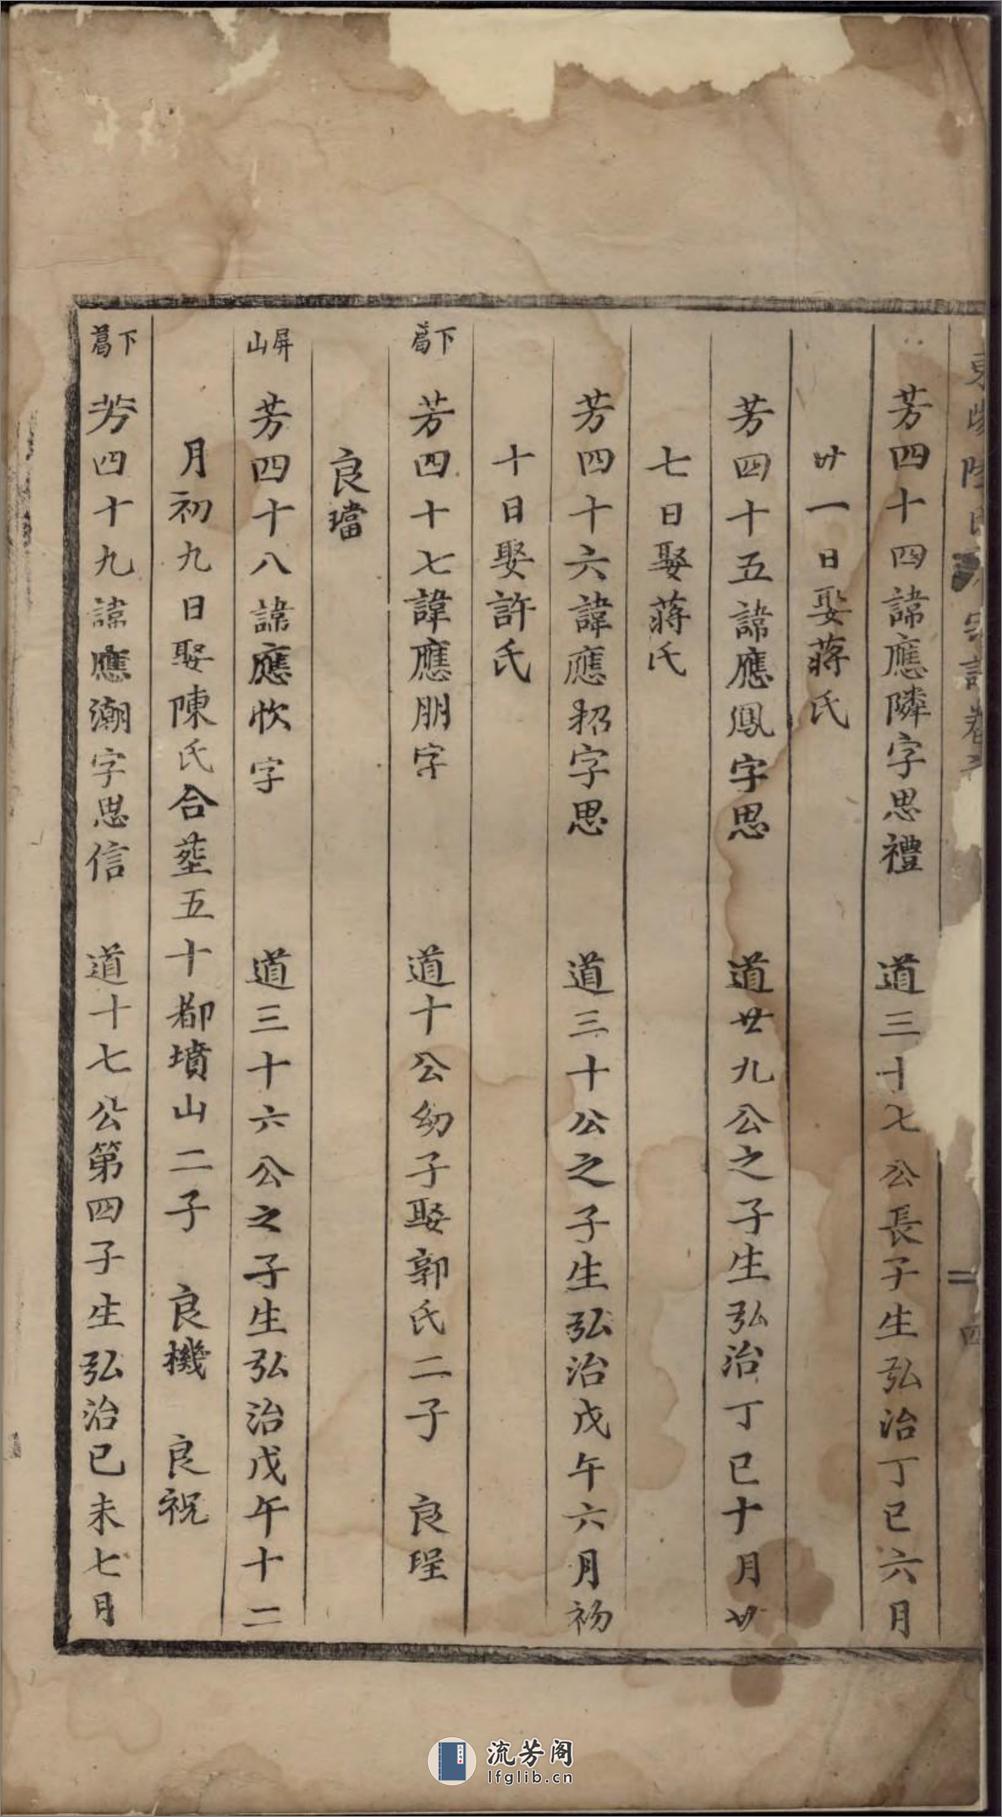 芳四十四諱應隣字思禮　道三十七公長子生弘治丁巳六月
廿一日娶蔣氏
芳四十五諱應鳳字思　道廿九公之子生弘治丁巳十月廿
七日娶蔣氏
芳四十六諱應招字思　道三十公之子生弘治戊午六月初
十日娶許氏
下葛　芳四十七諱應朋字　道十公幼子娶郭氏二子　良珵
良璫
屏山　芳四十八諱應忺字　道三十六公之子生弘治戊午十二
月初九日娶陳氏合塟五十都墳山二子　良機　良祝
下葛　芳四十九諱應潮字思信　道十七公第四子生弘治已未七月
流芳阁
lfglib.cn